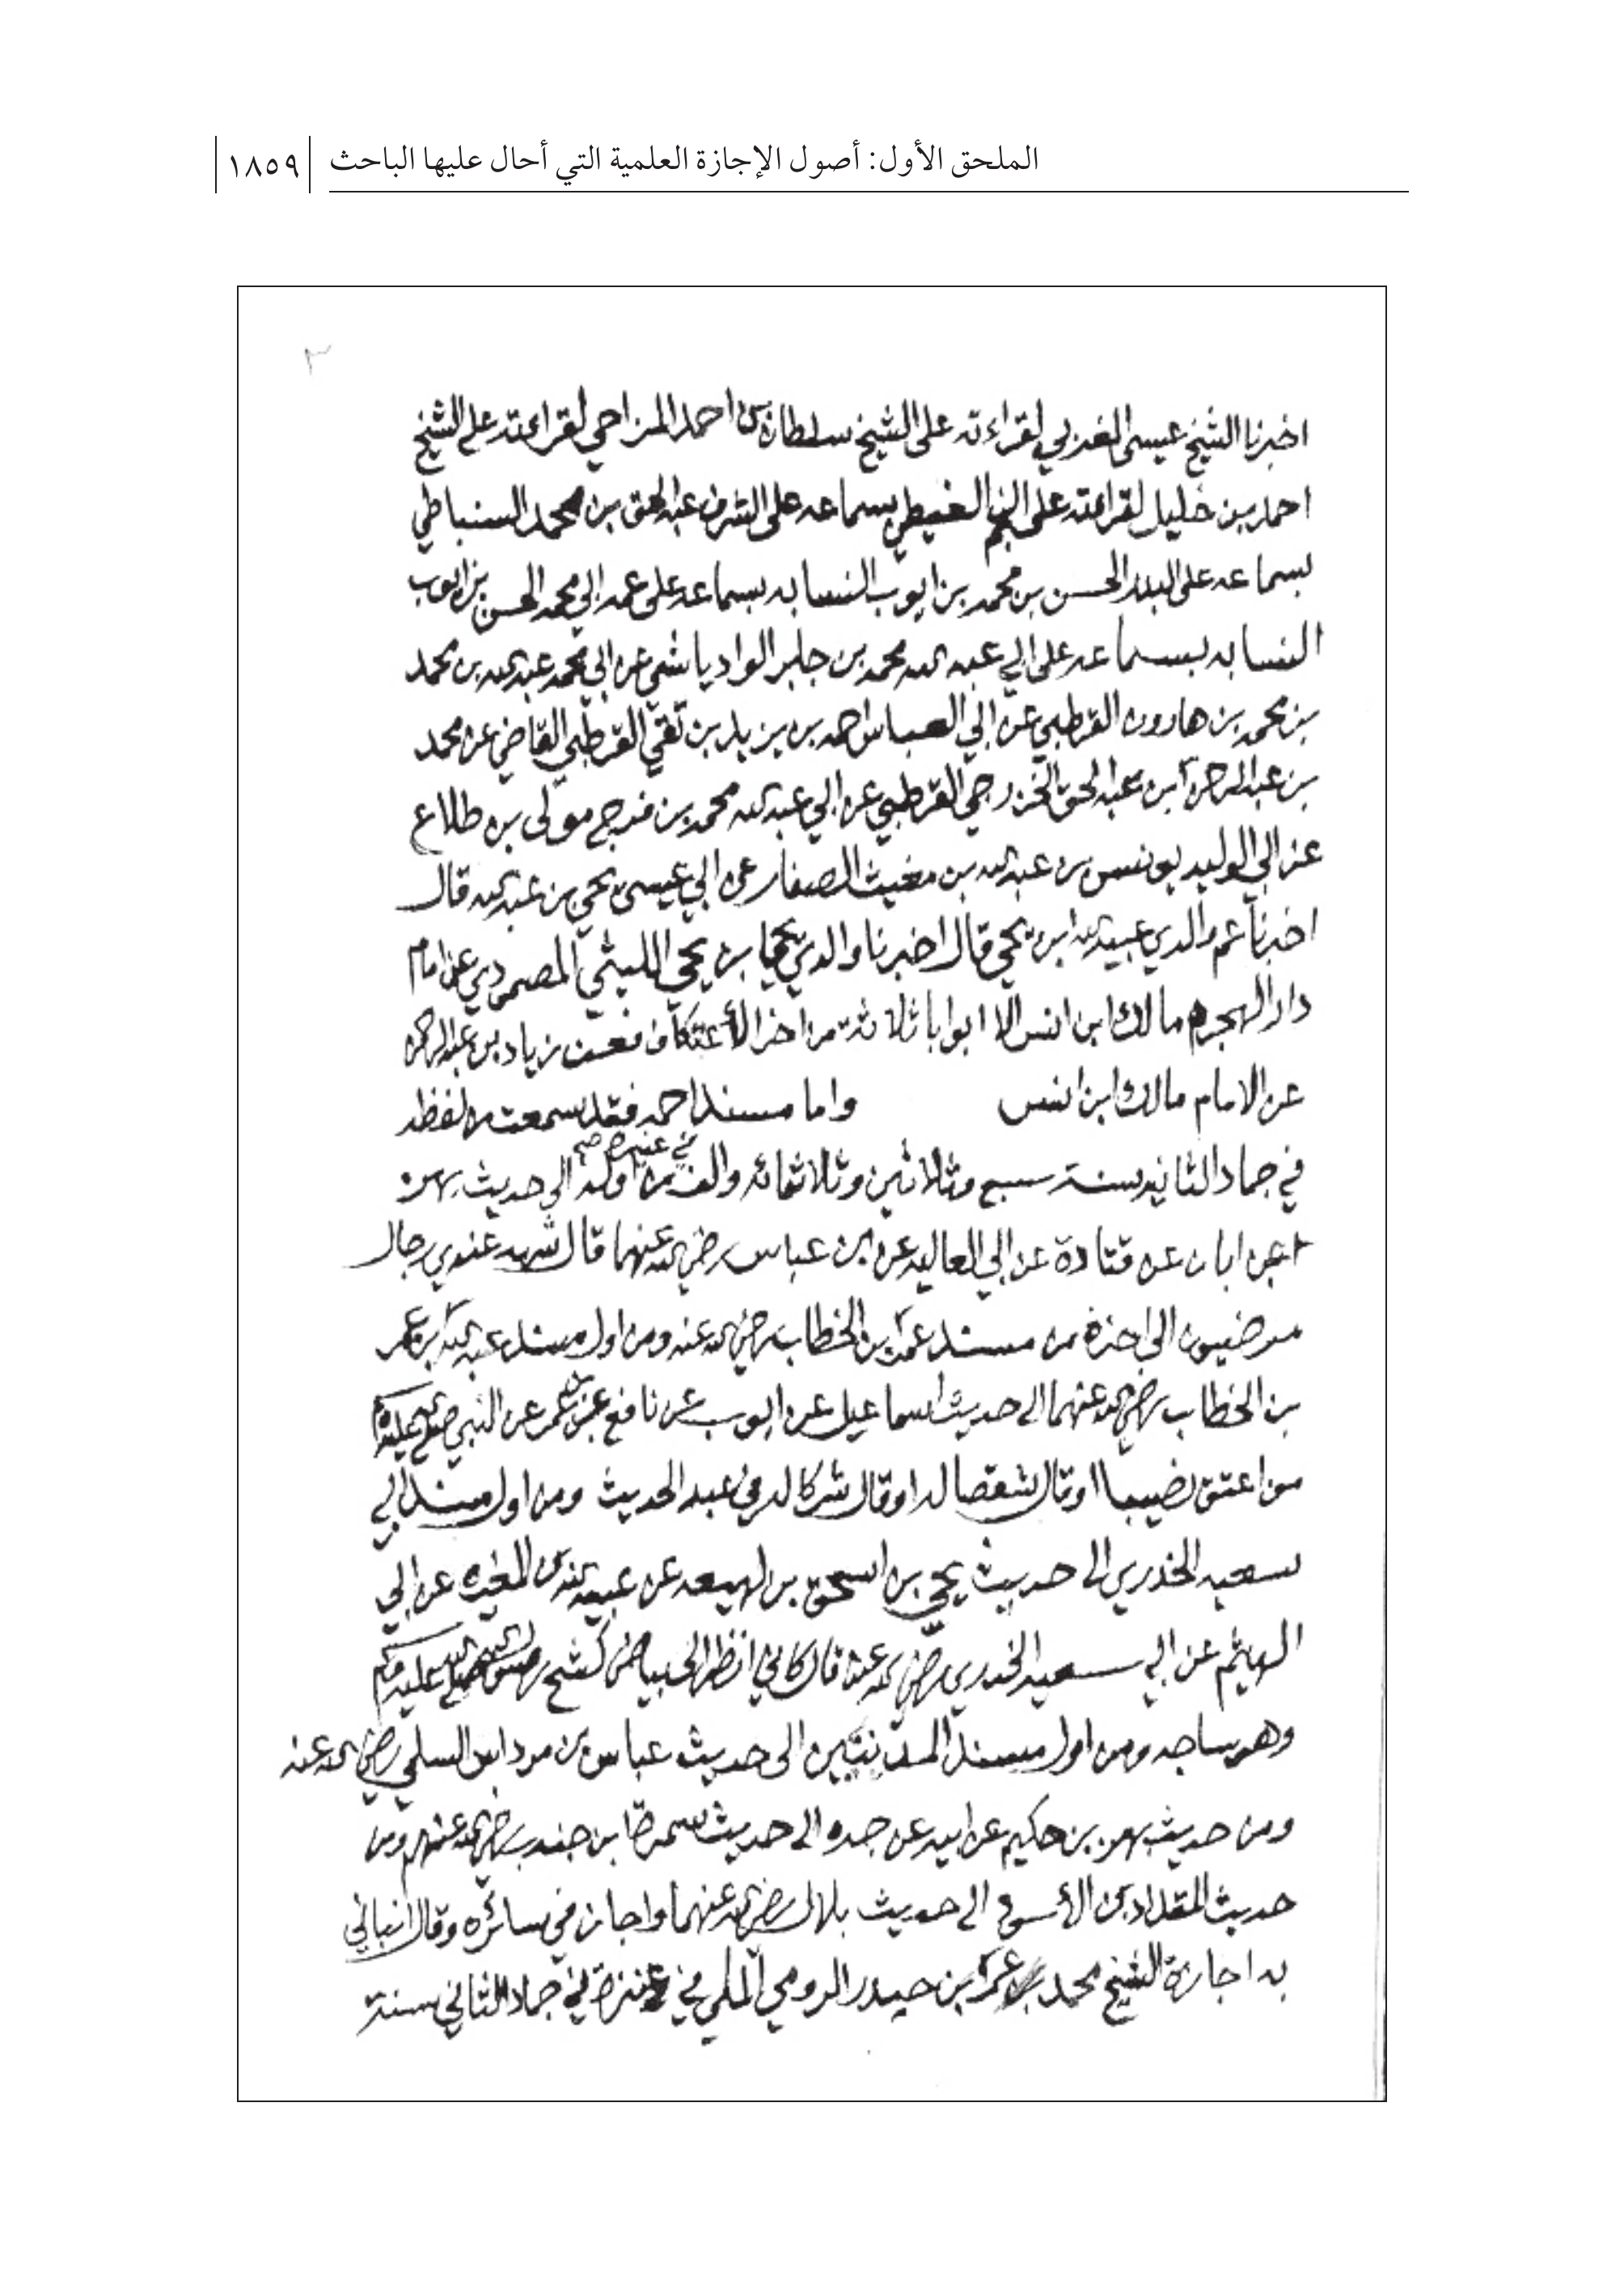 الملحق الأول: أصول الإجازة العلمية التي أحال عليها الباحث ١٨٥٩
٢
اخبرنا الشيخ عيسى المغربي لقراءته على الشيخ سلطان بن احمد المزاحي لقراءته على الشيخ
احمد بن خليل لقراءته على النجم الغيطي بسماعه على الشرف عبد الحق بن محمد السنباطي
بسماعه على البدر الحسن بن محمد بن ايوب النسابه بسماعه على عمه ابي محمد الحسن بن ايوب
النسابه بسماعه على ابي عبد الله محمد بن جابر الوادياشي عن ابي محمد عبد الله بن محمد
بن محمد بن هارون القرطبي عن ابي العباس احمد بن يزيد بن تقي القرطبي القاضي عن محمد
بن عبد الرحمن ابن عبد الحق الخزرجي القرطبي عن ابي عبد الله محمد بن فرج مولى بن طلاع
عن ابي الوليد يونس بن عبد الله بن مغيث الصفار عن ابي عيسى يحي بن عبد الله قال
اخبرنا عم والدي عبيد الله ابن يحي قال اخبرنا والدي يحيا بن يحي الليثي المصمودي عن امام
دار الهجره مالك ابن انس الا ابوابا ثلاثة من اخر الأعتكاف فعن زياد بن عبد الرحمن
عن الامام مالك ابن انس واما مسند احمد فقد سمعت من لفظه
في جماد الثانيه سنة سبع وثلاثين وثلاثمائه والف في عنيزه صح من اوله الى حديث بهز
عن ابان عن قتادة عن ابي العاليه عن ابن عباس رضي الله عنهما قال شهد عندي رجال
مرضيون الى اخره من مسند عمر بن الخطاب رضي الله عنه ومن اول مسند عبد الله ابن عمر
بن الخطاب رضي الله عنهما الى حديث اسماعيل عن ايوب عن نافع عن بن عمر عن النبي صلى الله عليه وسلم
من اعتق نصيبا او قال شقصا له او قال شركا له في عبد الحديث ومن اول مسند ابي
سعيد الخدري الى حديث يحي بن اسحق بن لهيعه عن عبيد الله بن المغيره عن ابي
الهيثم عن ابي سعيد الخدري رضي الله عنه قال كاني انظر الى بياض كشح رسول الله صلى الله عليه وسلم
وهو ساجد ومن اول مسند المدنيين الى حديث عباس بن مرداس السلمي رضي الله عنه
ومن حديث بهز بن حكيم عن ابيه عن جده الى حديث سمرة ابن جندب رضي الله عنهم ومن
حديث المقداد بن الأسود الى حديث بلال رضي الله عنهما واجازني سائره وقال انباني
به اجازة الشيخ محمد بن عمر ابن حيدر الرومي الملي في عنيزة في جماد الثاني سنة